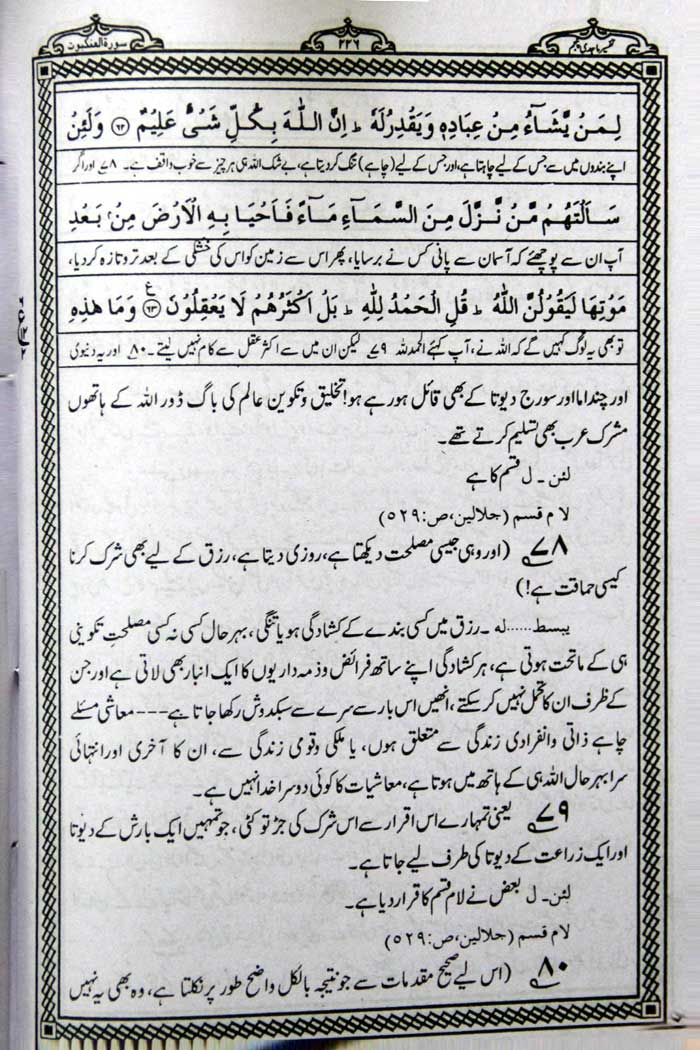 تفسیر ماجدی پنجم
۲۲۶
سورۃ العنکبوت
لِمَنْ يَّشَآءُ مِنْ عِبَادِهٖ وَيَقْدِرُ لَهٗ ؕ اِنَّ اللّٰهَ بِكُلِّ شَىْءٍ عَلِيْمٌ ﴿۶۲﴾ وَلَئِنْ
اپنے بندوں میں سے جس کے لیے چاہتا ہے، اور جس کے لیے (چاہے) تنگ کردیتا ہے، بے شک اللہ ہی ہر چیز سے خوب واقف ہے۔ ۷۸ اور اگر
سَاَلْتَهُمْ مَّنْ نَّزَّلَ مِنَ السَّمَآءِ مَآءً فَاَحْيَا بِهِ الْاَرْضَ مِنْۢ بَعْدِ
آپ ان سے پوچھئے کہ آسمان سے پانی کس نے برسایا، پھر اس سے زمین کو اس کی خشکی کے بعد تر و تازہ کردیا،
مَوْتِهَا لَيَقُوْلُنَّ اللّٰهُ ؕ قُلِ الْحَمْدُ لِلّٰهِ ؕ بَلْ اَكْثَرُهُمْ لَا يَعْقِلُوْنَ ﴿۶۳﴾ ع وَمَا هٰذِهِ
تو بھی یہ لوگ کہیں گے کہ اللہ نے، آپ کہئے الحمد للہ ۷۹ لیکن ان میں سے اکثر عقل سے کام نہیں لیتے۔ ۸۰ اور یہ دنیوی
اور چندا ماما اور سورج دیوتا کے بھی قائل ہورہے ہو! تخلیق و تکوین عالم کی باگ ڈور اللہ کے ہاتھوں
مشرک عرب بھی تسلیم کرتے تھے۔
لئن۔ ل قسم کا ہے
لام قسم (جلالین، ص: ۵۲۹)
۷۸ (اور وہی جیسی مصلحت دیکھتا ہے، روزی دیتا ہے، رزق کے لیے بھی شرک کرنا
کیسی حماقت ہے!)
یبسط......له۔ رزق میں کسی بندے کے کشادگی ہو یا تنگی، بہر حال کسی نہ کسی مصلحتِ تکوینی
ہی کے ماتحت ہوتی ہے، ہر کشادگی اپنے ساتھ فرائض و ذمہ داریوں کا ایک انبار بھی لاتی ہے اور جن
کے ظرف ان کا تحمل نہیں کرسکتے، انھیں اس بار سے سرے سے سبکدوش رکھا جاتا ہے --- معاشی مسئلے
چاہے ذاتی و انفرادی زندگی سے متعلق ہوں، یا ملکی و قومی زندگی سے، ان کا آخری اور انتہائی
سرا بہر حال اللہ ہی کے ہاتھ میں ہوتا ہے، معاشیات کا کوئی دوسرا خدا نہیں ہے۔
۷۹ یعنی تمہارے اس اقرار سے اس شرک کی جڑ تو کٹی، جو تمہیں ایک بارش کے دیوتا
اور ایک زراعت کے دیوتا کی طرف لیے جاتا ہے۔
لئن۔ ل بعض نے لام قسم کا قرار دیا ہے۔
لام قسم (جلالین، ص: ۵۲۹)
۸۰ (اس لیے صحیح مقدمات سے جو نتیجہ بالکل واضح طور پر نکلتا ہے، وہ بھی یہ نہیں